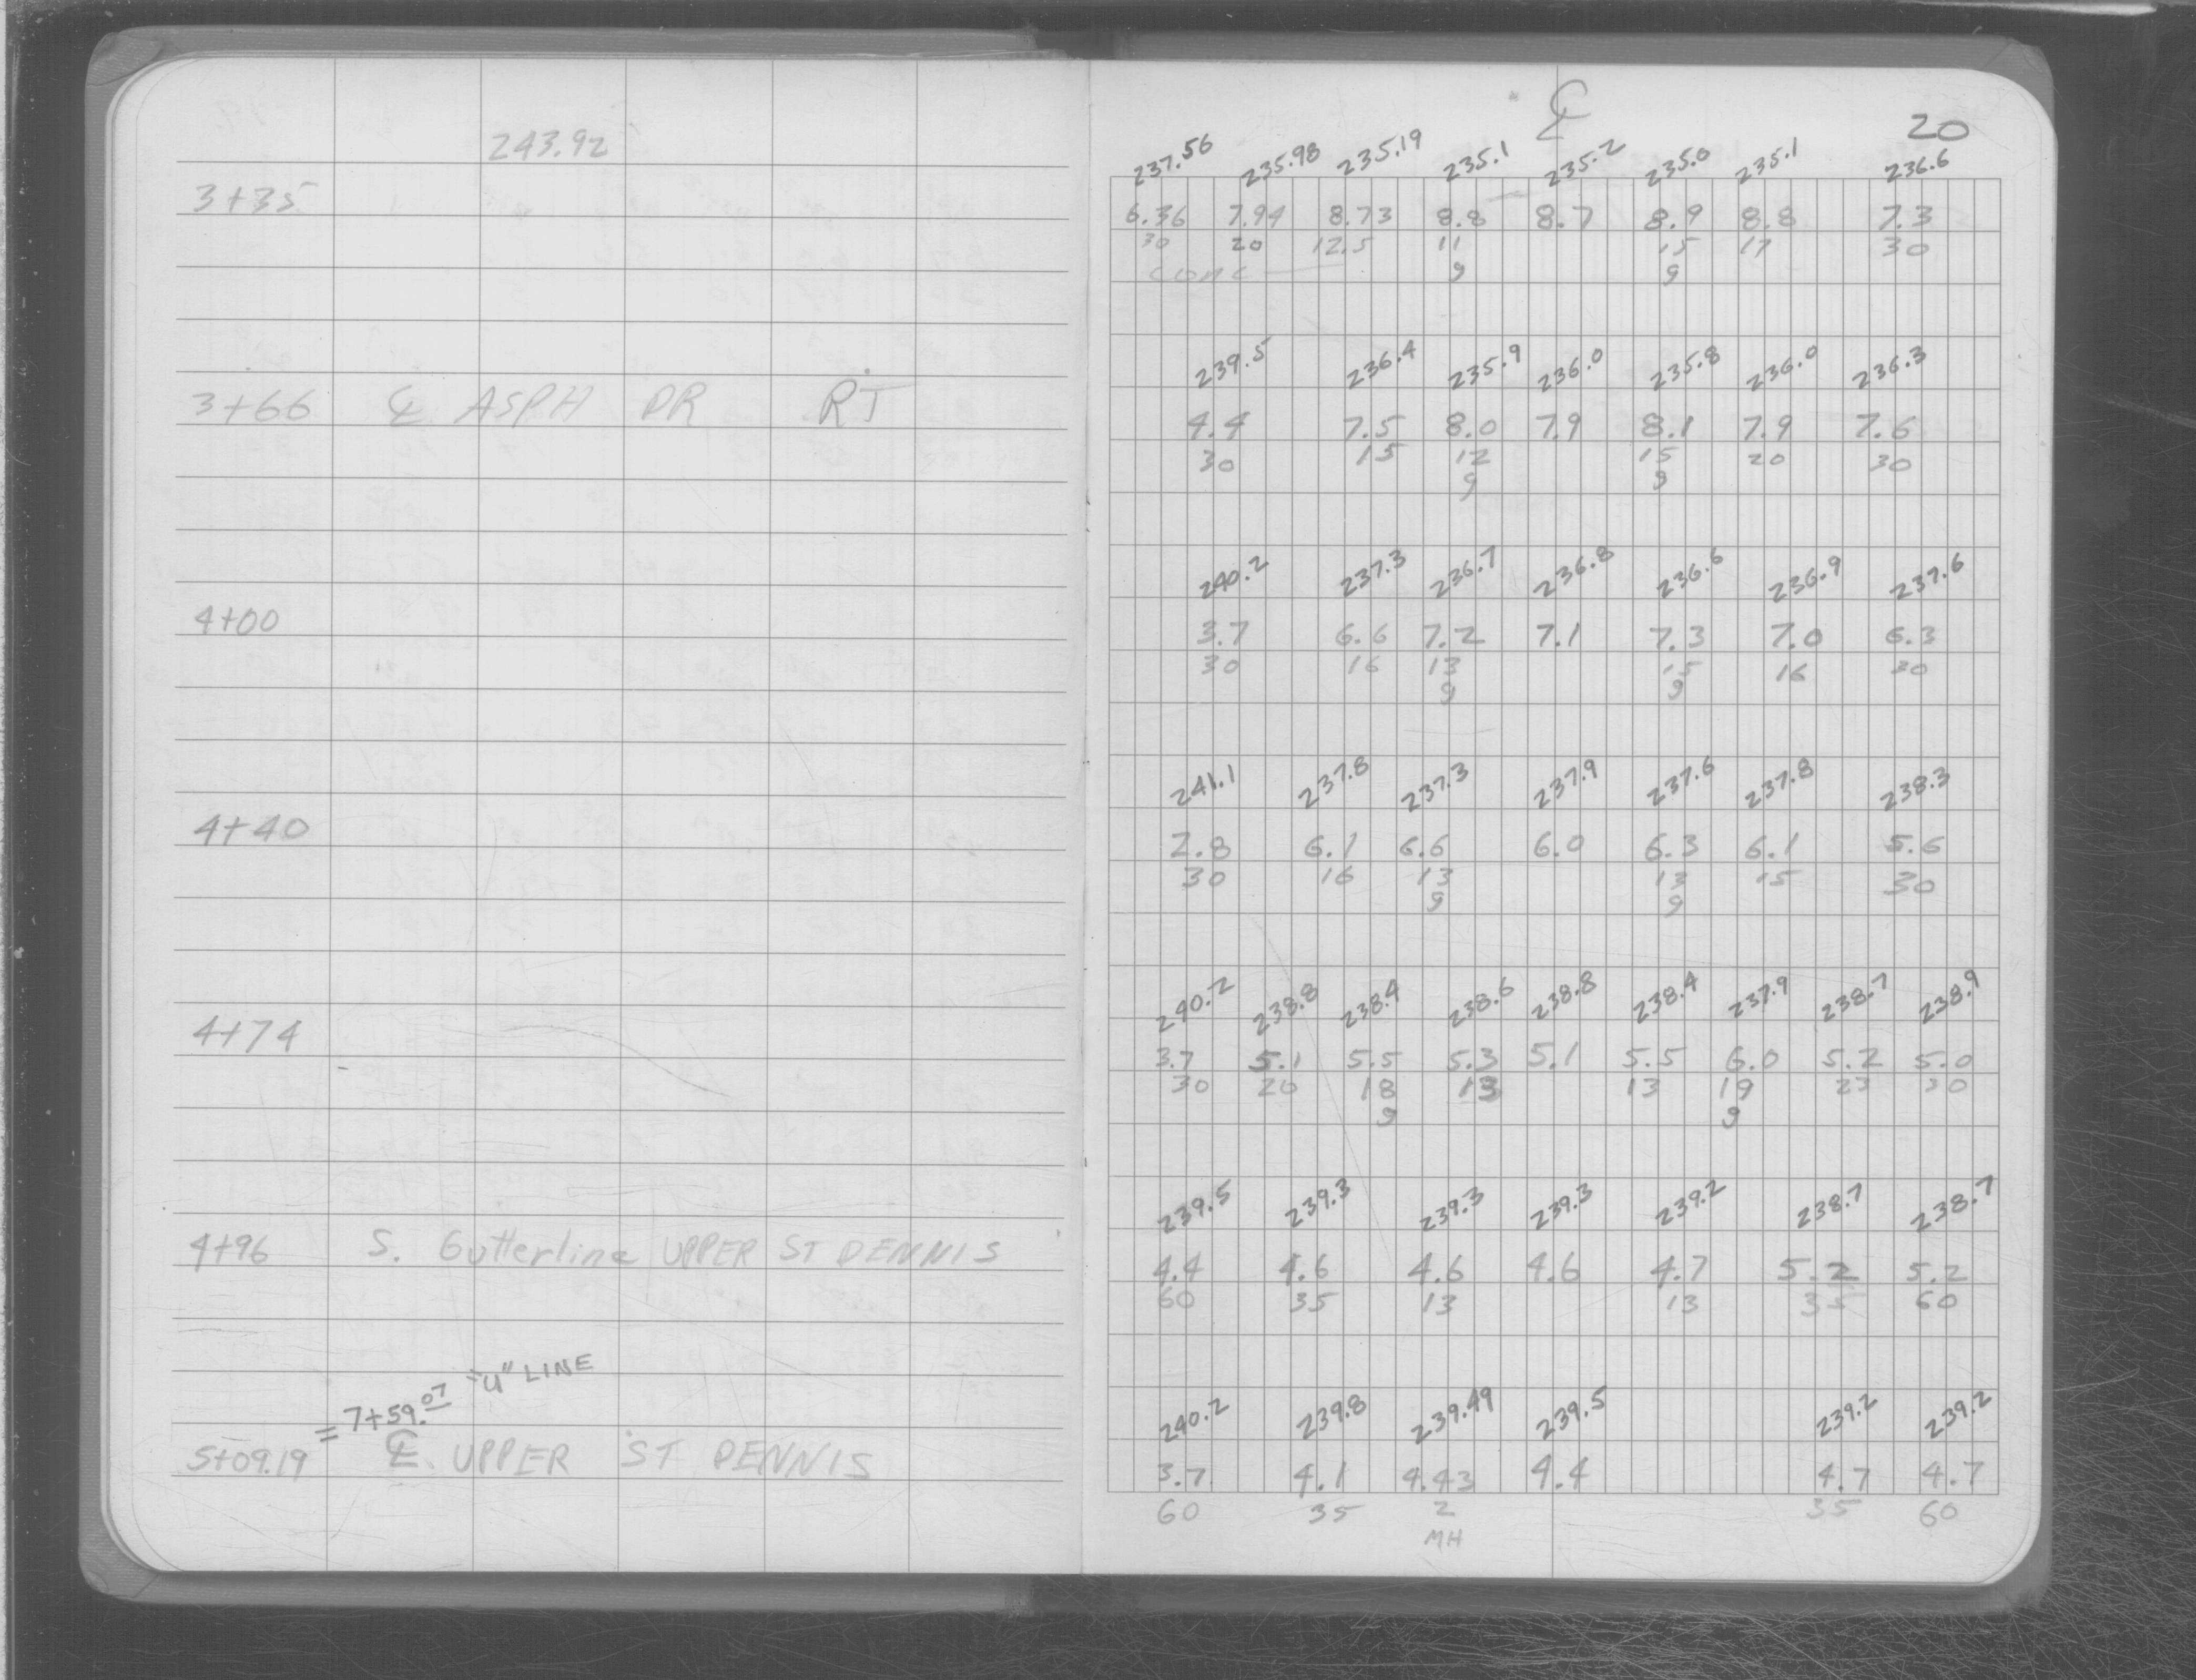 243.92
3+35
3+66 ℄ ASPH DR RT
4+00
4+40
4+74
4+96 S. Gutterline UPPER ST DENNIS
= 7+59.07 "U" LINE
5+09.19 ℄ UPPER ST DENNIS
℄
20
237.56 235.98 235.19 235.1 235.2 235.0 235.1 236.6
6.36 7.94 8.73 8.8 8.7 8.9 8.8 7.3
30 20 12.5 11 15 17 30
conc 9 9
239.5 236.4 235.9 236.0 235.8 236.0 236.3
4.4 7.5 8.0 7.9 8.1 7.9 7.6
30 15 12 15 20 30
9 9
240.2 237.3 236.7 236.8 236.6 236.9 237.6
3.7 6.6 7.2 7.1 7.3 7.0 6.3
30 16 13 15 16 30
9 9
241.1 237.8 237.3 237.9 237.6 237.8 238.3
2.8 6.1 6.6 6.0 6.3 6.1 5.6
30 16 13 13 15 30
9 9
240.2 238.8 238.4 238.6 238.8 238.4 237.9 238.7 238.9
3.7 5.1 5.5 5.3 5.1 5.5 6.0 5.2 5.0
30 20 18 13 13 19 23 30
9 9
239.5 239.3 239.3 239.3 239.2 238.7 238.7
4.4 4.6 4.6 4.6 4.7 5.2 5.2
60 35 13 13 35 60
240.2 239.8 239.49 239.5 239.2 239.2
3.7 4.1 4.43 4.4 4.7 4.7
60 35 2 35 60
MH